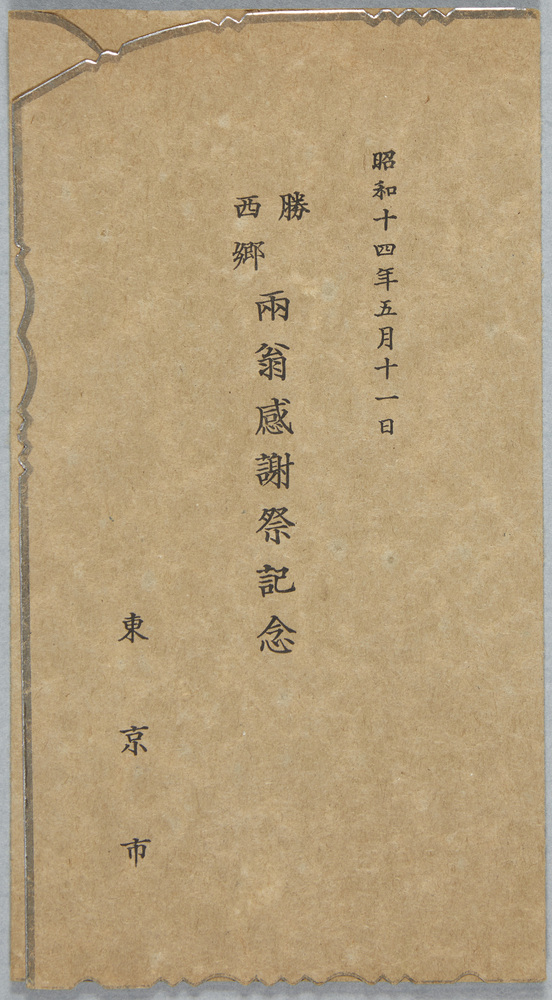 昭和十四年五月十一日
勝
西郷
兩翁感謝祭記念
東京市